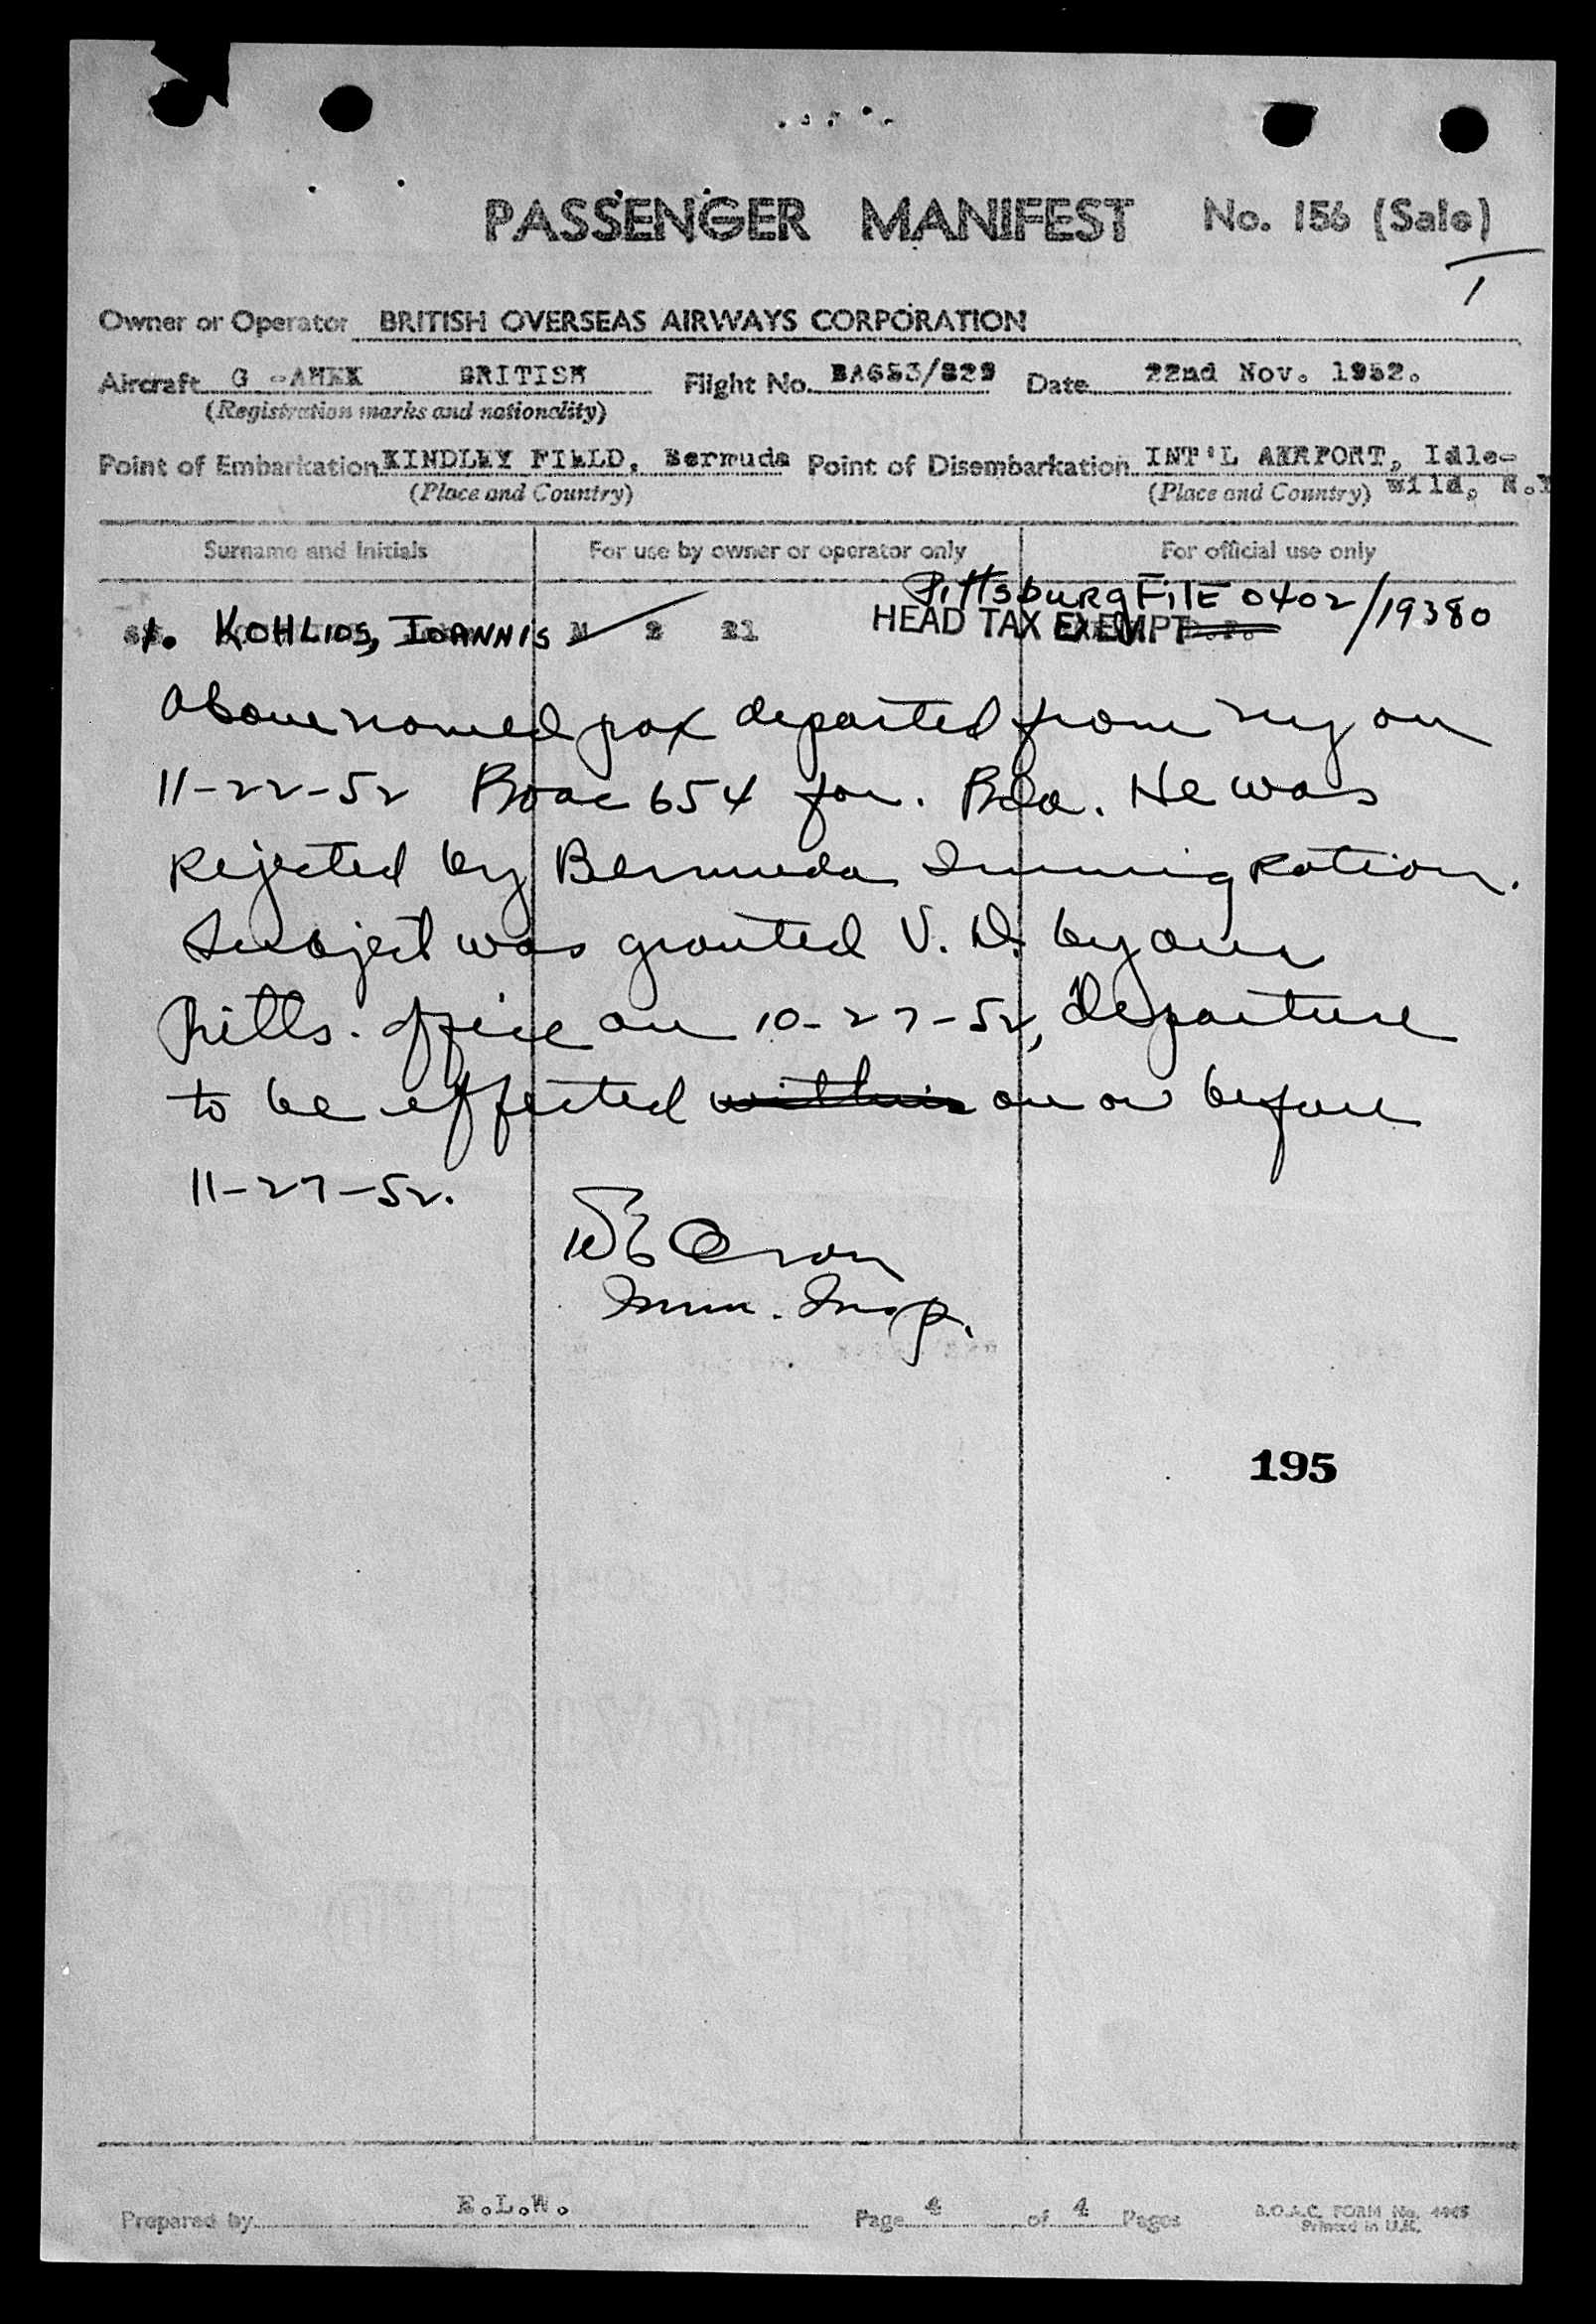 PASSENGER MANIFEST No. 156 (Sale)
1
Owner or Operator BRITISH OVERSEAS AIRWAYS CORPORATION
Aircraft G - BRITISH Flight No. Date 22nd Nov. 1952.
(Registration marks and nationality)
Point of Embarkation KINDLEY FIELD, Bermuda Point of Disembarkation INT'L AIRPORT, Idle-
(Place and Country) (Place and Country) wild, N.Y
Surname and Initials For use by owner or operator only For official use only
Pittsburg FilE 0402/19380
1. KOHLIOS, IOANNIS M 2 21 HEAD TAX EXEMPT
Above named pax departed from ny on
11-22-52 Boac 654 for. Bda. He was
Rejected by Bermuda Immigration.
Subject was granted V. D. by our
Pitts. office on 10-27-52, departure
to be effected within on or before
11-27-52.
Imm. Insp.
195
Prepared by E.L.W. Page 4 of 4 Pages B.O.A.C. FORM No.
Printed in U.K.